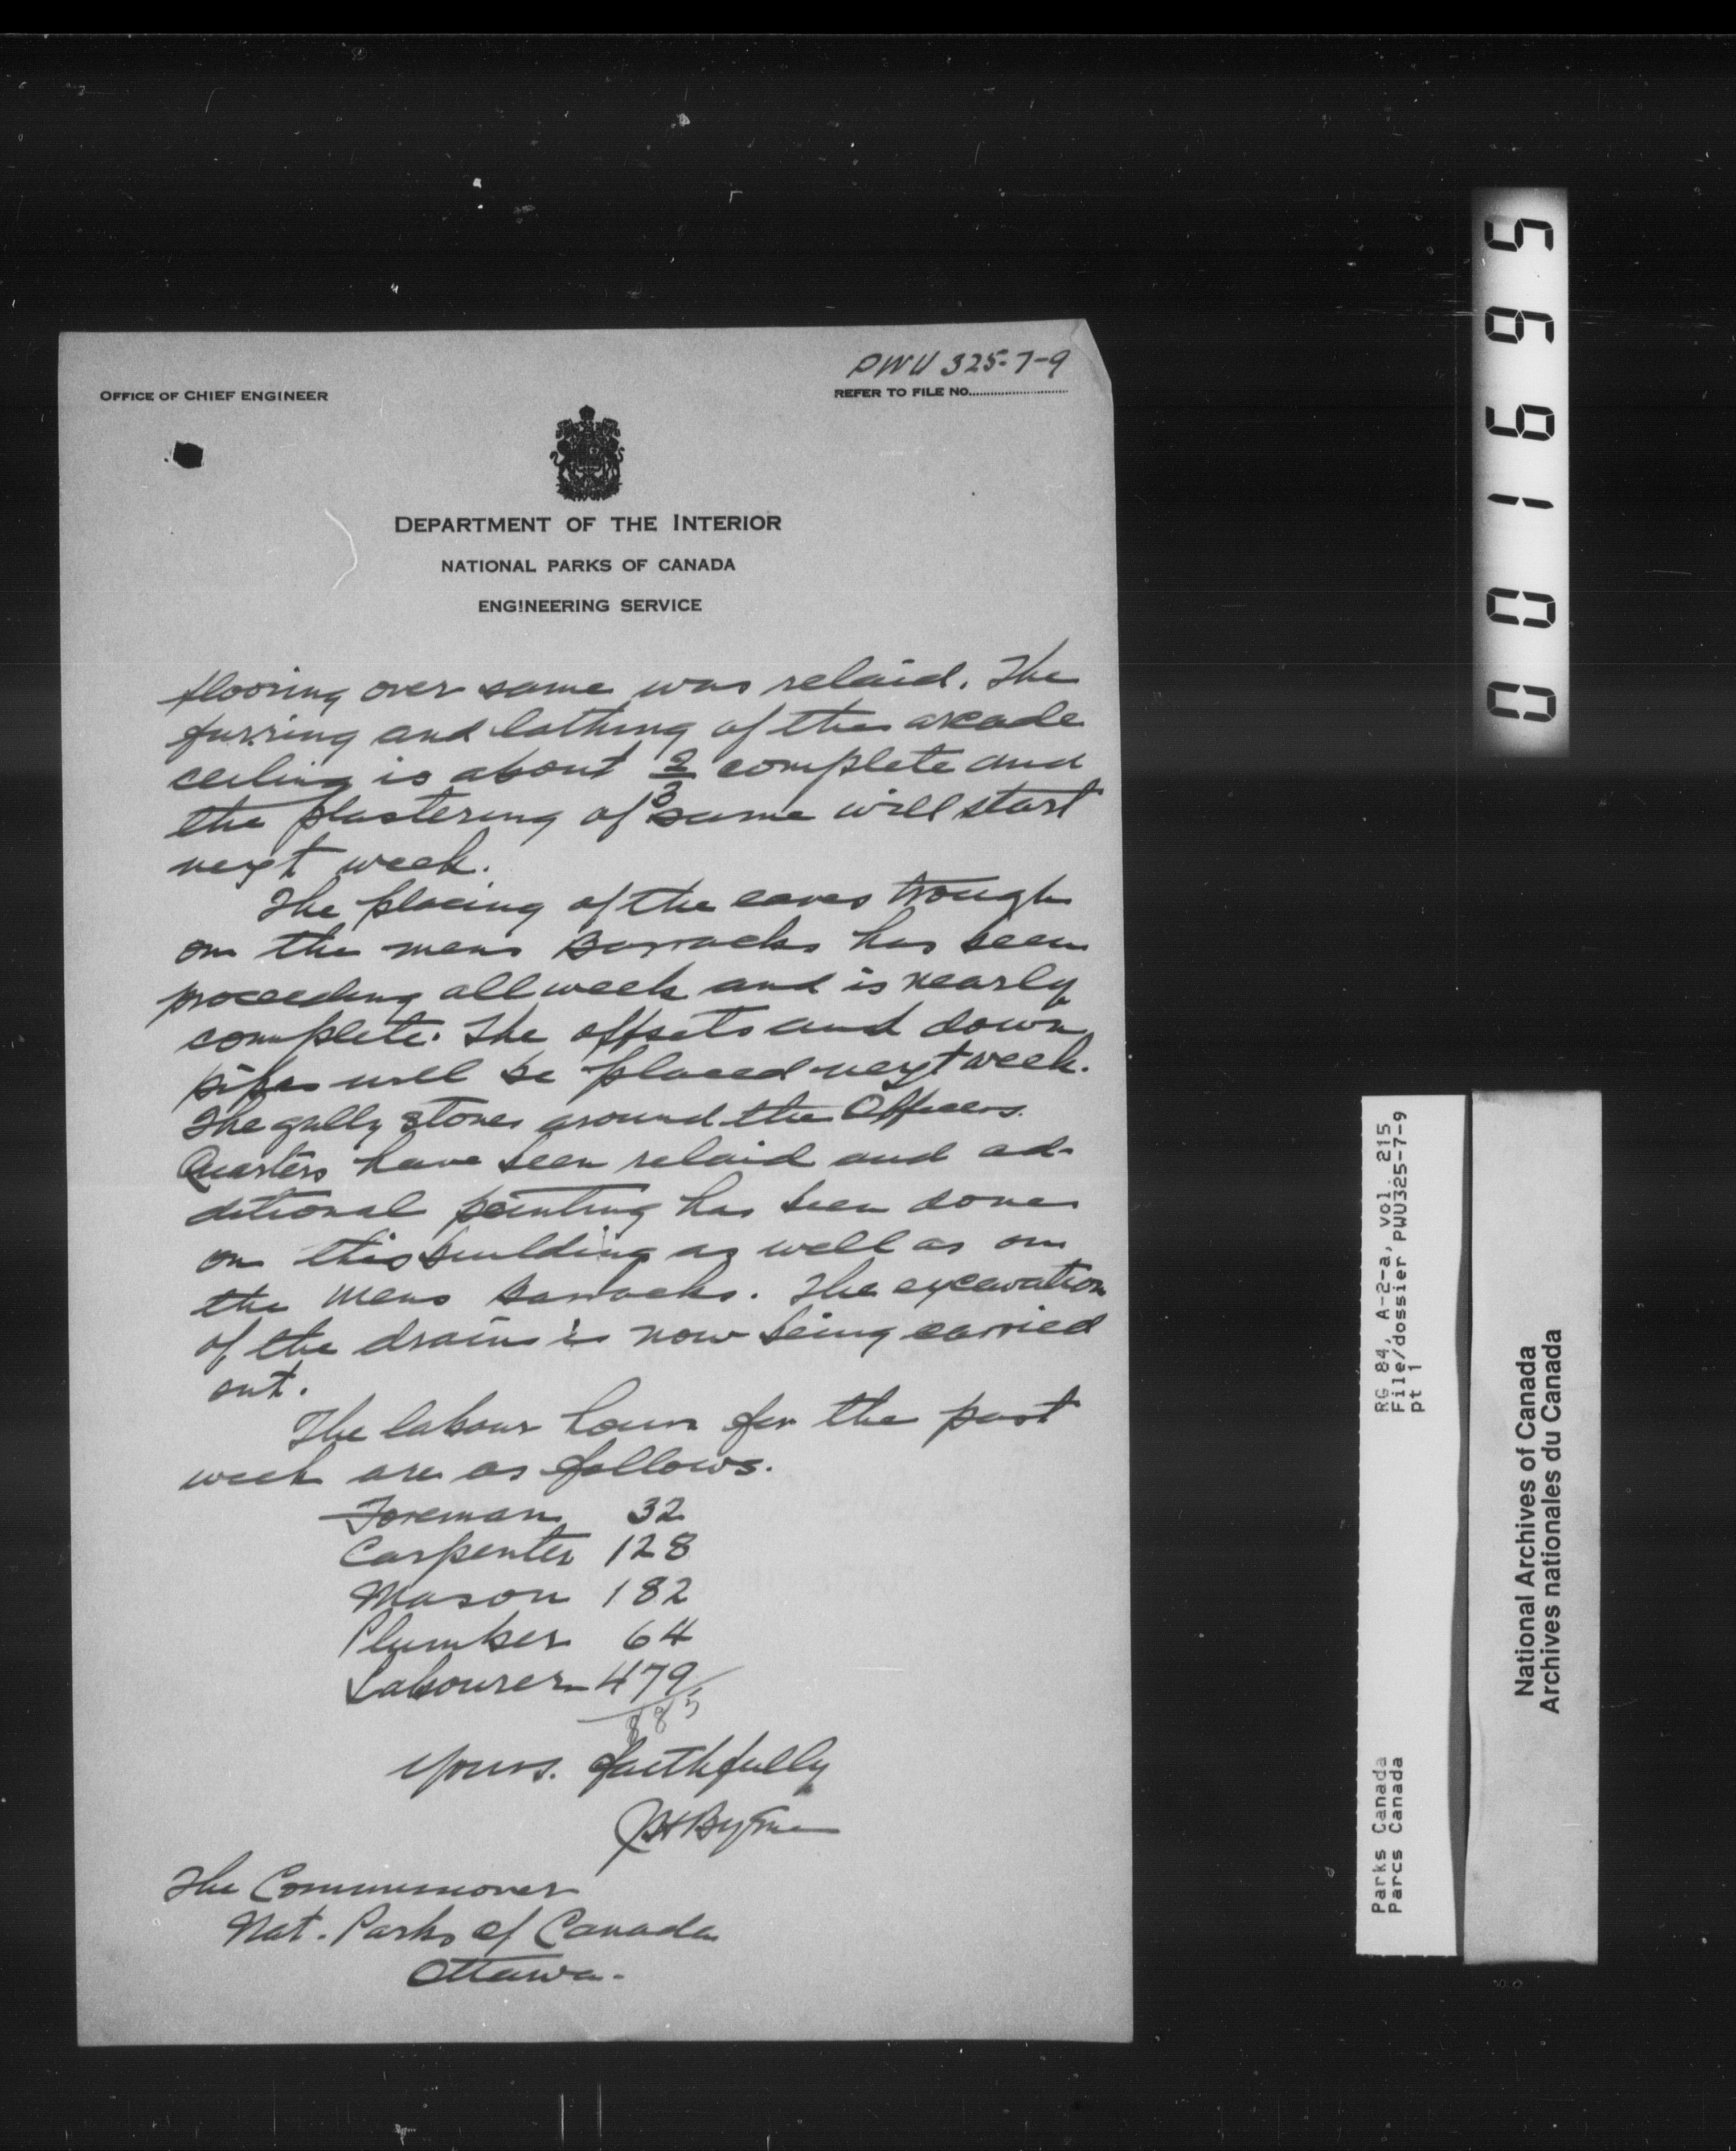 PWU 325-7-9
OFFICE OF CHIEF ENGINEER
REFER TO FILE NO.
DEPARTMENT OF THE INTERIOR
NATIONAL PARKS OF CANADA
ENGINEERING SERVICE
flooring over same was relaid. The
furring and lathing of the arcade
ceiling is about 2/3 complete and
the plastering of same will start
next week.
The placing of the eaves trough
on the mens Barracks has been
proceeding all week and is nearly
complete. The offsets and down
pipes will be placed next week.
The gully stones around the Officers.
Quarters have been relaid and ad-
ditional pointing has been done
on this building as well as on
the mens Barracks. The excavation
of the drains is now being carried
out.
The labour hours for the past
week are as follows.
Foreman 32
Carpenter 128
Mason 182
Plumber 64
Labourer 479
885
Yours. faithfully
The Commissioner
Nat. Parks of Canada
Ottawa.
001695
RG 84, A-2-a, vol. 215,
File/dossier PWU325-7-9
pt 1
Parks Canada
Parcs Canada
National Archives of Canada
Archives nationales du Canada